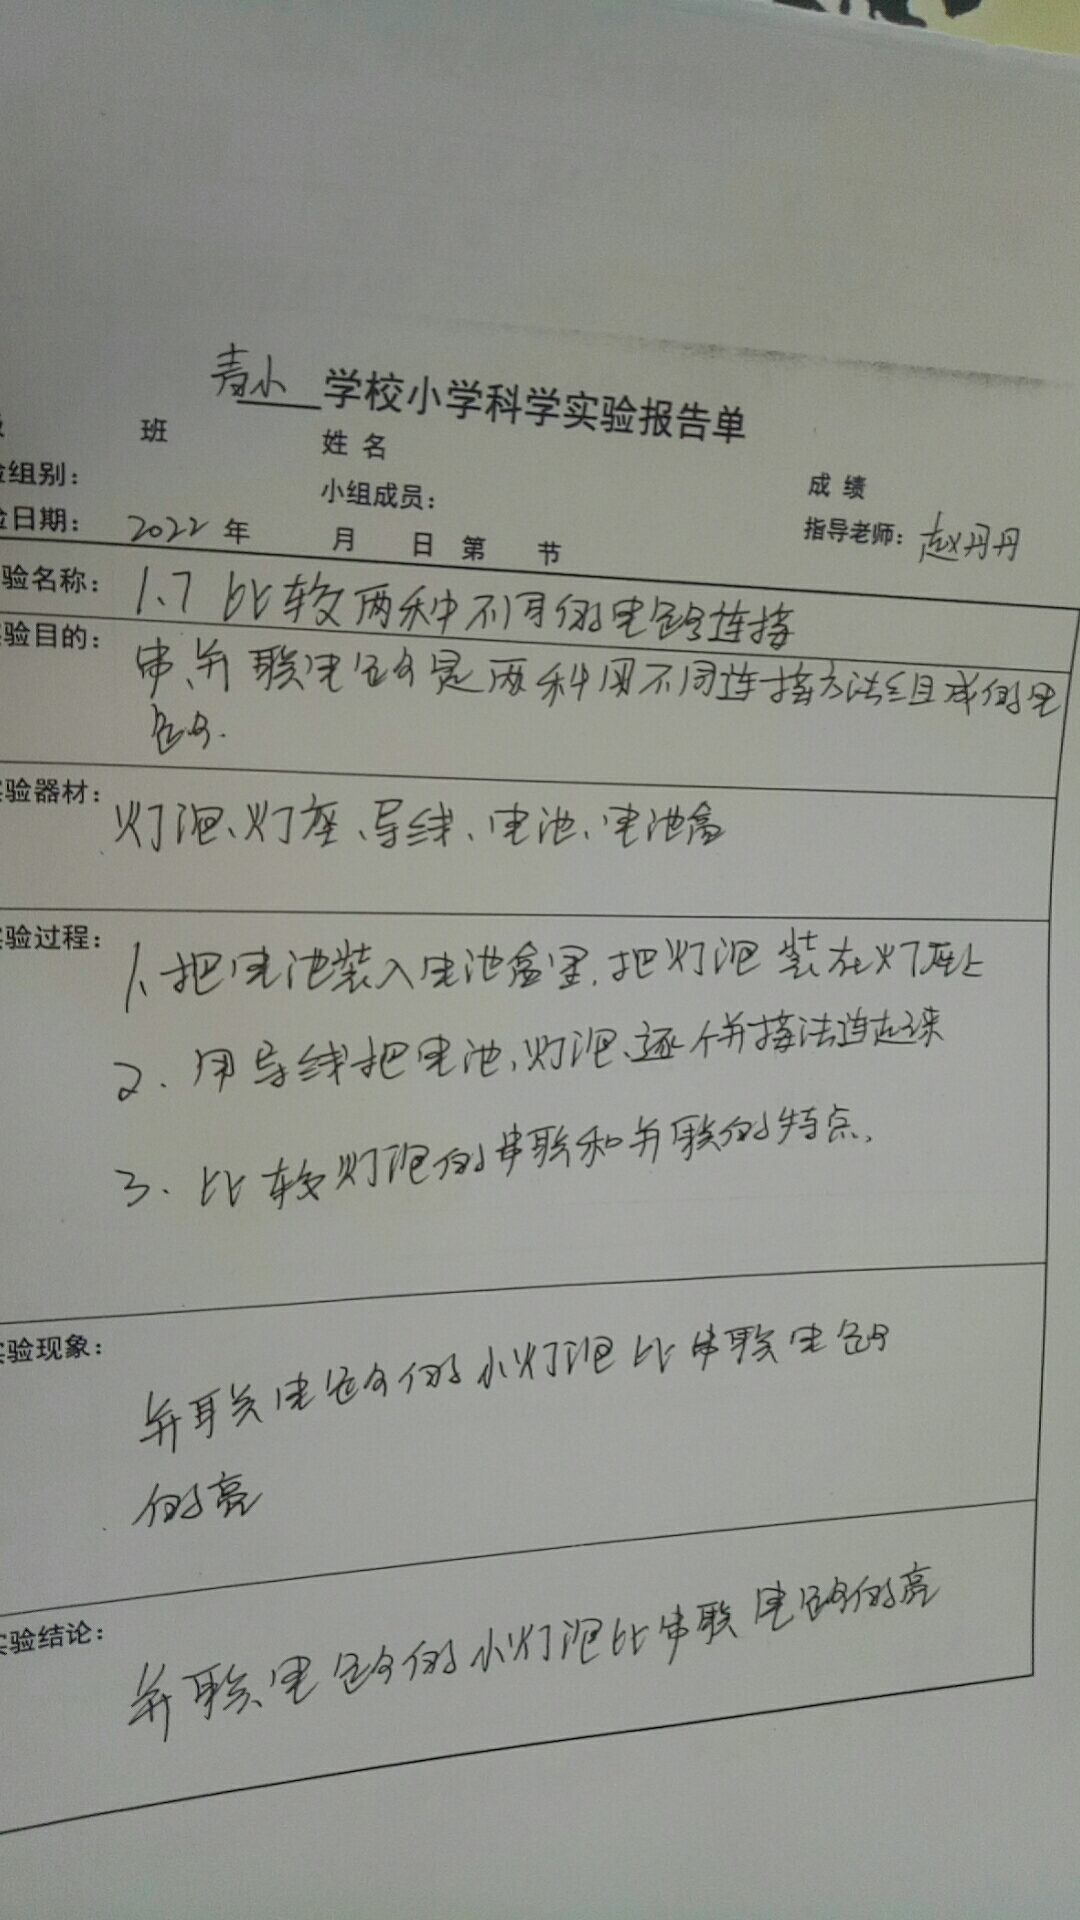 青小 学校小学科学实验报告单
班 姓 名 成 绩
组别： 小组成员：
日期： 2022 年 月 日 第 节 指导老师：赵丹丹
验名称： 1.7 比较两种不同的电路连接
验目的： 串、并联电路是两种用不同连接方法组成的电
路.
验器材： 灯泡、灯座、导线、电池、电池盒
验过程： 1、把电池装入电池盒里，把灯泡装在灯座上
2、用导线把电池、灯泡、逐个併接法连起来
3、比较灯泡的串联和并联的特点.
验现象：
并联电路的小灯泡比串联电路
的亮
验结论：
并联电路的小灯泡比串联电路的亮